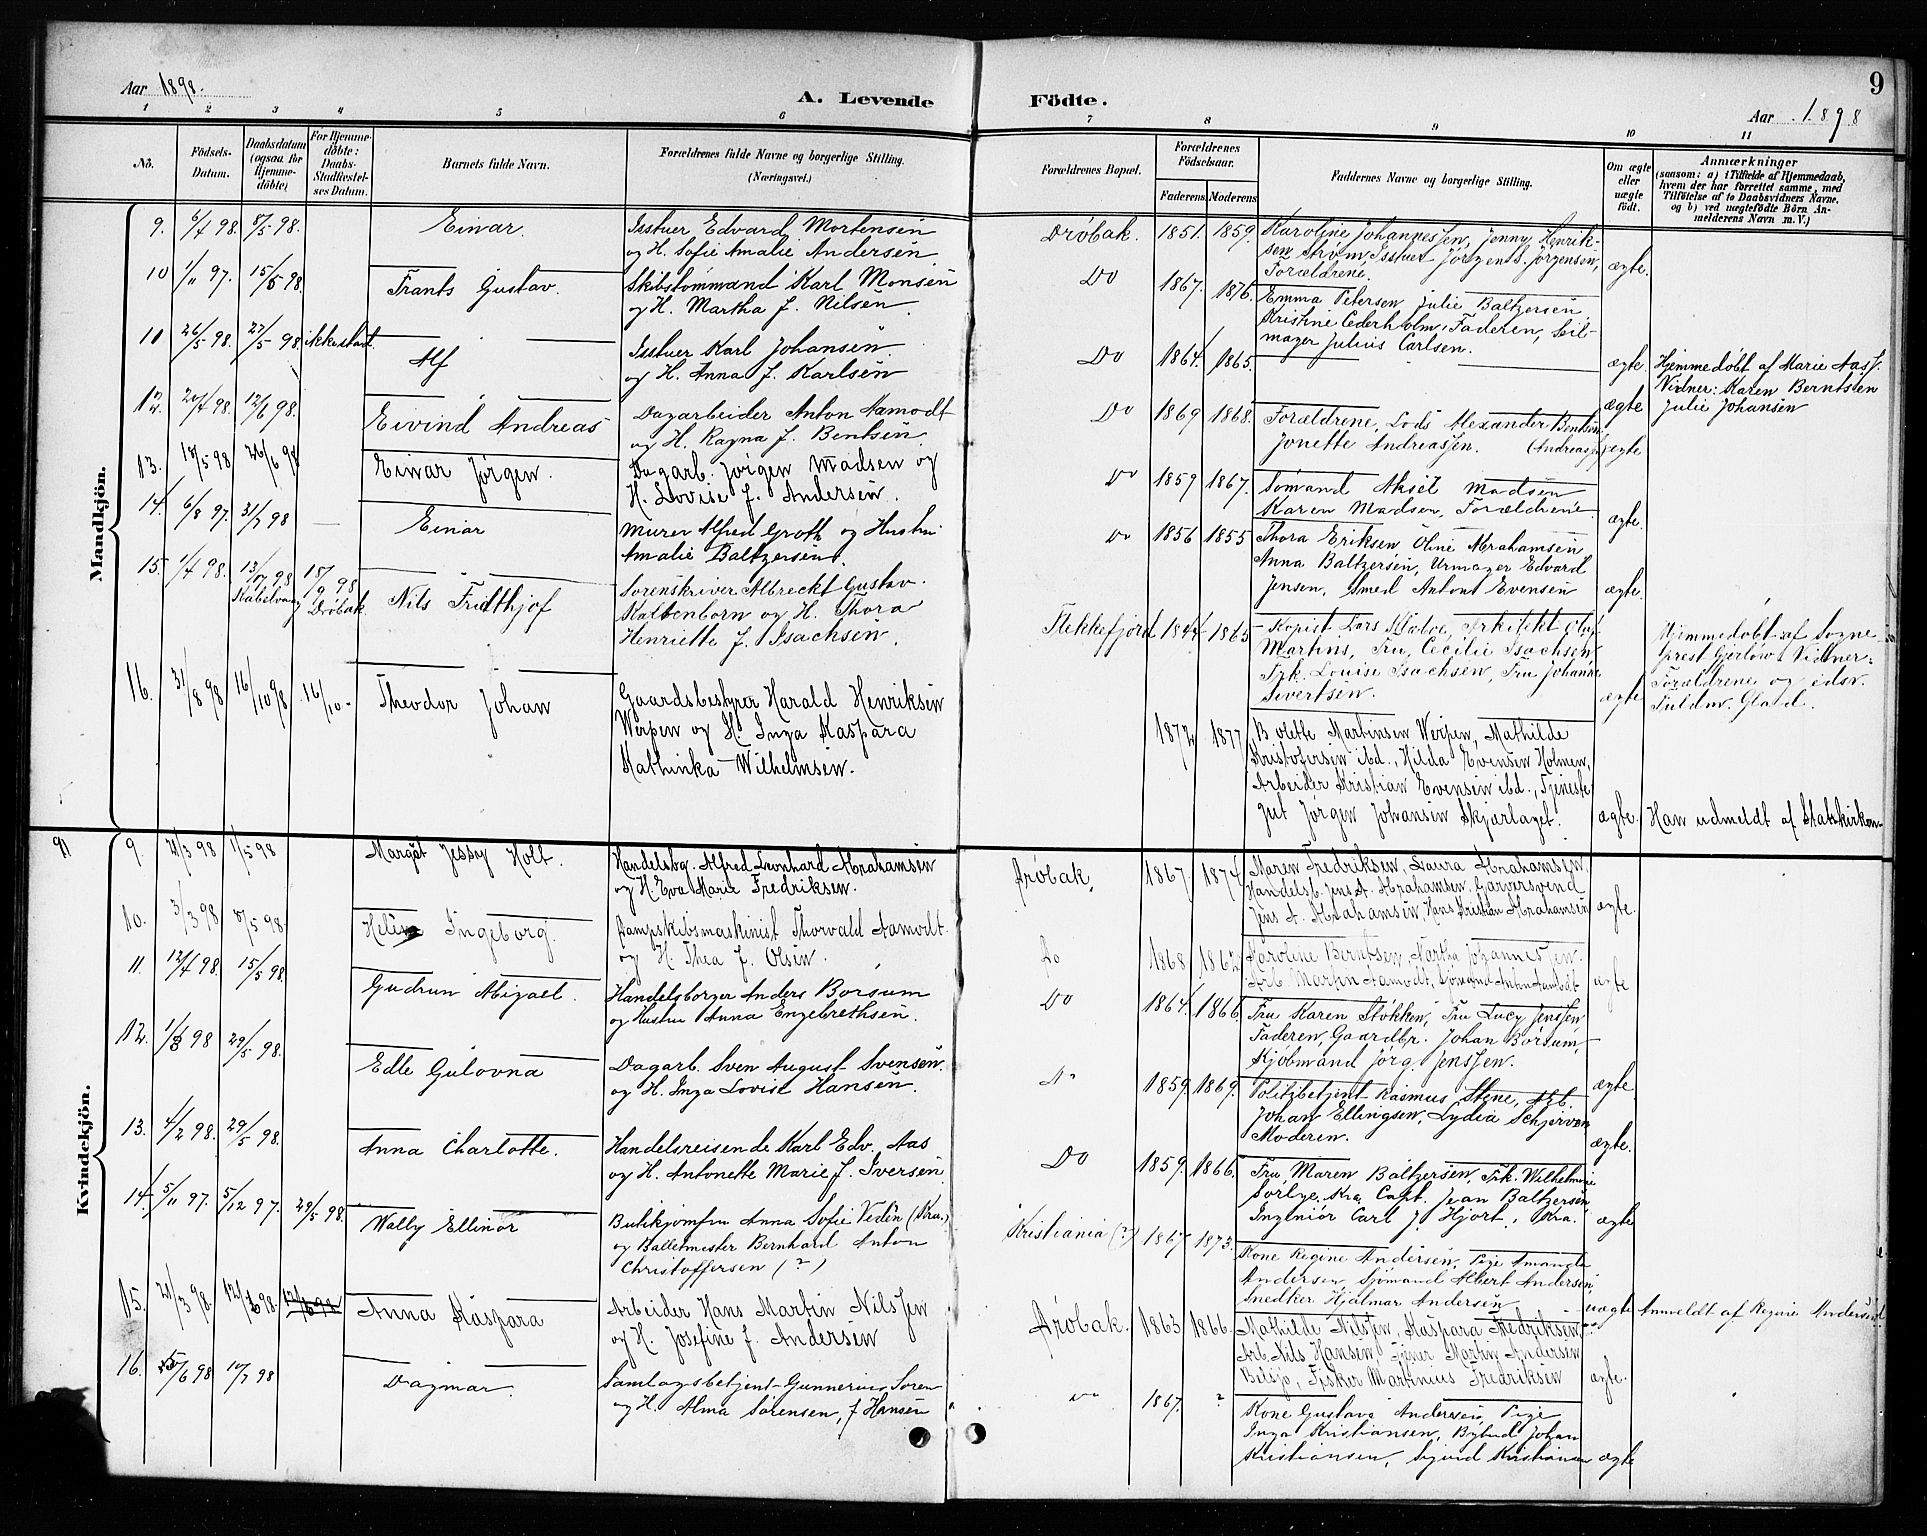 Aar 1898.
A. Levende
Födte.
9
Aar 1898
1 2 3 4 5 6 7 8 9 10 11
No.
Födsels-Datum.
Daabsdatum (ogsaa for Hjemme-döbte)
For Hjemme-döbte: Daabs-Stadfæstel-ses Datum.
Barnets fulde Navn.
Forældrenes fulde Navne og borgerlige Stilling. (Næringsvei.)
Forældrenes Bopæl.
Forældrenes Födselsaar.
Faderens Moderens
Faddernes Navne og borgerlige Stilling.
Om ægte eller uægte födt.
Anmærkninger
(saasom: a) i Tilfælde af Hjemmedaab, hvem der har forrettet samme, med Tilföielse af to Daabsvidners Navne, og b) ved uægtefödte Börn Anmelderens Navn m. V.)
Mandkjön.
9. 6/4 98. 8/5 98. Einar.
Isstuer Edvard Mortensen
og H. Sofie Amalie Andersen.
Drøbak. 1851. 1859.
Karoline Johannessen, Jenny Henrik-
sen Strøm, Isstuer Jørgen S. Jørgensen,
Forældrene.
ægte.
10 1/11 97. 15/5 98. Frants Gustav.
Skibstømmand Karl Monsen
og H. Martha f. Nilsen.
Do 1867. 1876.
Emma Petersen, Julie Baltzersen,
Kristine Cederholm, Faderen, Seil-
mager Julius Carlsen.
ægte.
11 26/5 98. 27/5 98. ikke stad. Alf
Isstuer Karl Johansen.
og H. Anna f. Karlsen
Do 1864. 1865.
ægte
Hjemmedøbt af Marie Aas f.
Vidner: Karen Berntsten
Julie Johansen
12. 20/4 98. 12/6 98. Eivind Andreas
Dagarbeider Anton Aamodt
og H. Ragna f. Bentsen.
Do 1869 1868.
Forældrene, Lods Alexander Bentsen,
Jonette Andreassen.
ægte
13. 18/5 98 26/6 98 Einar Jørgen.
Dagarb. Jørgen Madsen og
H. Lovise f. Andersen.
Do 1859 1867.
Sømand Aksel Madsen
Karen Madsen, Forældrene.
ægte.
14. 6/8 97. 31/7 98 Einar
Murer Alfred Groth og Hustru
Amalie Baltzersen.
Do 1856 1855
Thora Eriksen, Oline Abrahamsen
Anna Baltzersen, Urmager Edvard
Jensen, Smed Anton Evensen
ægte.
15. 1/4 98. 13/7 98 Kabelvaag 18/9 98 Drøbak Nils Fridthjof
Sorenskriver Albreckt Gustav
Kaltenborn og H. Thora
Henriette f. Isachsen.
Flekkefjord 1844 1865
Kopist Lars Kjølve, Arkitekt Olaf
Martins, Fru Cecilie Isachsen
Frk. Louise Isachsen, Fru Johanne
Sivertsen.
ægte
Hjemmedøbt af Sogne-
prest Gjerløw. Vidner:
Forældrene og edsv.
Fuldm. Glad.
16. 31/8 98 16/10 98 16/10 - Theodor Johan
Gaardsbestyrer Harald Henriksen
Werpen og H. Inga Kaspara
Kathinka Wilhelmsen.
1872 1877
Bolette Martinsen Werpen, Mathilde
Kristofersen ibd., Hilda Evensen Holmen,
Arbeider Kristian Evensen ibd., Tjeneste-
gut Jørgen Johansen Skjærlaget.
ægte.
Han udmeldt af Statskirken
Kvindekjön.
9. 21/3 98 1/5 98 Margot Jessy Holt.
Handelsbg. Alfred Leonhard Abrahamsen
og H. Eva Marie Fredriksen.
Drøbak, 1867 1874
Maren Fredriksen, Laura Abrahamsen,
Handelsb. Jens A. Abrahamsen, Garversvend
Jens A. Abrahamsen, Hans Kristian Abrahamsen
ægte.
10. 3/3 98 8/5 98. Helene Ingeborg.
Dampskibsmaskinist Thorvald Aamodt.
og H. Thea f. Olsen.
Do 1868 1862
Karoline Berntsen, Martha Johannessen.
Arb. Martin Aamodt, Sjømand Anton Aamodt
ægte
11. 12/4 98. 15/5 98. Gudrun Abigael.
Handelsborger Anders Borsum
og Hustru Anna Engebrethsen.
Do 1864. 1866.
Fru Karen Støkken, Fru Lucy Jenssen
Faderen, Gaardbr. Johan Borsum,
Kjøbmand Jørg. Jenssen.
ægte
12. 1/3 98 29/5 98. Edle Gulovna
Dagarb. Sven August Svensen.
og H. Inga Lovise Hansen.
Do 1859. 1869.
Politibetjent Rasmus Stene, Arb.
Johan Ellingsen, Lydia Schjerven
Moderen.
ægte.
13. 4/2 98. 29/5 98. Anna Charlotte.
Handelsreisende Karl Edv. Aas
og H. Antonette Marie f. Iversen
Do 1859. 1866.
Fru Maren Baltzersen, Frk. Wilhelmine
Sørlye, Kra, Capt. Jean Baltzersen,
Ingeniør Carl J. Hjort, Kra.
ægte
14. 5/11 97. 5/12 97. 29/5 98. Wally Ellinor
Butikjomfru Anna Sofie Vedén (Kra.)
og Balletmester Bernhard Anton
Christoffersen (?)
Kristiania (?) 1867 1873.
Kone Regine Andersen, Pige Amanda
Andersen, Sjømand Albert Andersen,
Snedker Hjalmar Andersen
uægte
Anmeldt af Regine Andersen
15. 21/3 98. 12/6 98. 12/6 98 Anna Kaspara
Arbeider Hans Martin Nilssen
og H. Josefine f. Andersen
Drøbak. 1863 1866.
Mathilde Nilssen, Kaspara Fredriksen,
Arb. Nils Hansen, Tjener Martin Andersen
Bilsjø, Fisker Martinius Fredriksen
ægte.
16. 25/6 98 10/7 98 Dagmar.
Samlagsbetjent Gunnerius Soren
og H. Alma Sorensen, f Hansen
Do 1867. ?
Kone Gustava Andersen, Pige
Inga Kristiansen, Bybud Johan
Kristiansen, Sigurd Kristiansen
ægte